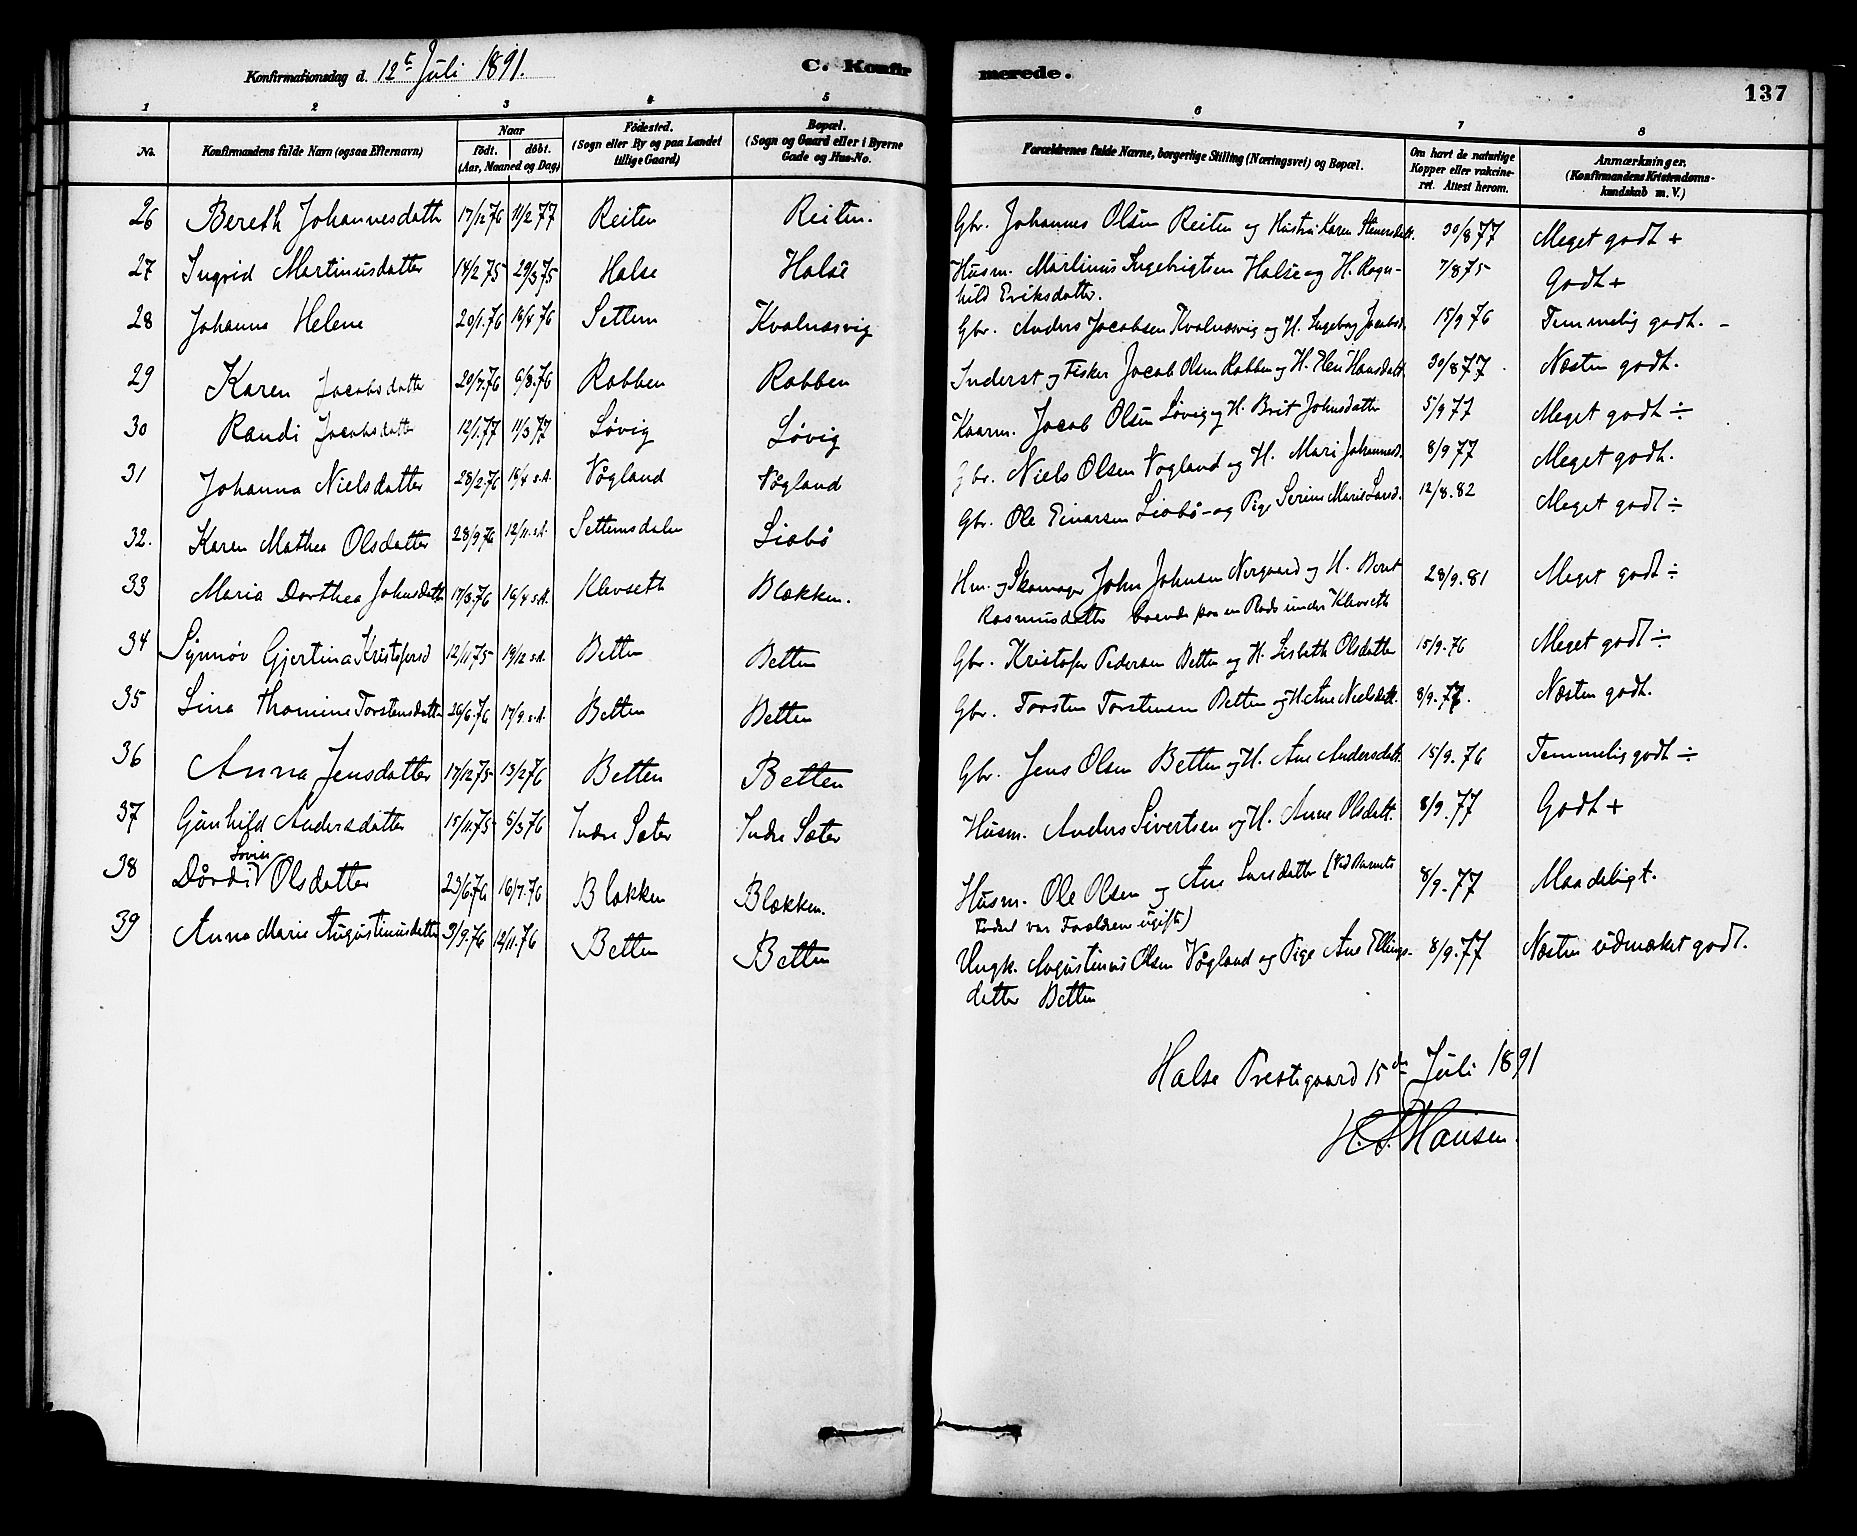 Konfirmationsdag d. 12te Juli 1891.
C. Konfirmerede.
137
1 2 3 4 5 6 7 8
No.
Konfirmandens fulde Navn (ogsaa Efternavn)
Naar
födt. döbt.
(Aar, Maaned og Dag)
Födested.
(Sogn eller By og paa Landet
tillige Gaard)
Bopæl.
(Sogn og Gaard eller i Byerne
Gade og Hus-No.
Forældrenes fulde Navne, borgerlige Stilling (Næringsvei) og Bopæl.
Om havt de naturlige
Kopper eller vakcine-
ret. Attest herom.
Anmærkninger.
(Konfirmandens Kristendoms-
kundskab m. V.)
26 Bereth Johannesdatt 17/12 76 11/2 77 Reiten Reiten. Gbr. Johannes Olsen Reiten og Hustru Karen 30/8 77 Meget godt +
27 Ingrid Martinusdatter 14/2 75 29/3 75 Halse Halse Husm. Martinus Ingebrigtsen Halse og H. Ragn- 7/8 75 Godt +
hild Eriksdatter.
28 Johanna Helene 20/1.76 18/4 76 Settem Kvalnæsvig Gbr. Anders Jacobsen Kvalnæsvig og H. Ingeborg Jacobsd. 15/9 76 Temmelig godt. -
29 Karen Jacobsdatter 20/7.76 6/8.76 Rabben Rabben Inderst og Fisker Jacob Olsen Rabben og H. Hansdatt. 30/8 77. Næsten godt.
30 Randi Jacobsdatter 12/1.77 11/3 77 Løvig Løvig Kaarm. Jacob Olsen Løvig og H. Brit Johnsdatter 5/9 77 Meget godt ÷
31 Johanna Nielsdatter 28/2.76 18/4 s.A. Vågland Vågland Gbr. Niels Olsen Vogland og H. Mari Johannesd. 8/9 77 Meget godt.
32. Karen Mathea Olsdatter 28/9 76 12/11. s.A. Settemsdalen Liabö Gbr. Ole Einarsen Liabö - og Pige Serine Marie Larsd. 12/8.82 Meget godt ÷
33 Maria Dorthea Johnsdatt 17/3.76 16/4 s.A. Klevseth Blækken. Hm. og Skomager John Johnsen Nergaard og H. Berit 28/9.81 Meget godt ÷
Rasmusdatter boende paa en Plads under Klevseth
34 Synnøv Gjertina Kristofersd 12/11.75 19/12 s.A. Betten Betten Gbr. Kristofer Pedersen Betten og H. Lisbeth Olsdatter 15/9.76 Meget godt ÷
35 Lina Thomine Torstensdatter 26/6.76 17/9. s.A. Betten Betten Gbr. Torsten Torstensen Betten og H. Ane Nielsdatt. 8/9.77. Næsten godt.
36 Anna Jensdatter 17/12.75 13/2 76 Betten Betten Gbr. Jens Olsen Betten og H. Ane Andersdatt. 15/9.76 Temmelig godt ÷
37 Gunhild Andersdatter 15/11.75 5/3 76 Indre Sæter Indre Sæter Husm. Anders Sivertsen og H. Anne Olsdatt. 8/9.77 Godt +
38 Dårdi Lovise Olsdatter 23/6.76 16/7.76 Blækken Blækken. Husm. Ole Olsen og Ane Larsdatter (Ved Barnets 8/9.77 Maadeligt.
Födsel var Forældrene ugifte)
39 Anna Marie Augustinusdatter 3/9.76 12/11.76 Betten Betten Ungk. Augustinus Olsen Vågland og Pige Ane Ellings- 8/9.77 Næsten udmærket godt.
datter Betten
Halse Prestegaard 15de Juli 1891
Hansen.